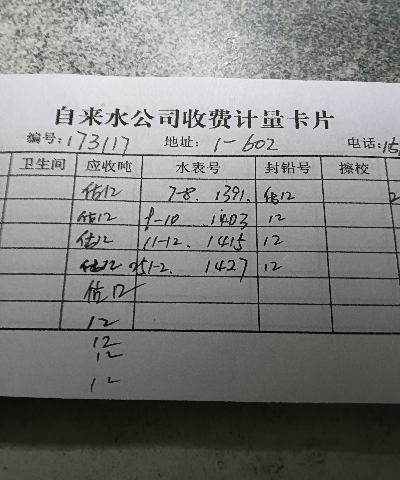 自来水公司收费计量卡片
编号: 173117 地址: 1-602 电话: 15
卫生间 应收吨 水表号 封铅号 擦校
估12 7-8. 1391. 估12 2
估12 9-10 1403 12
估12 11-12. 1415 12
估12 251-2. 1427 12
估12
12
12
12
12